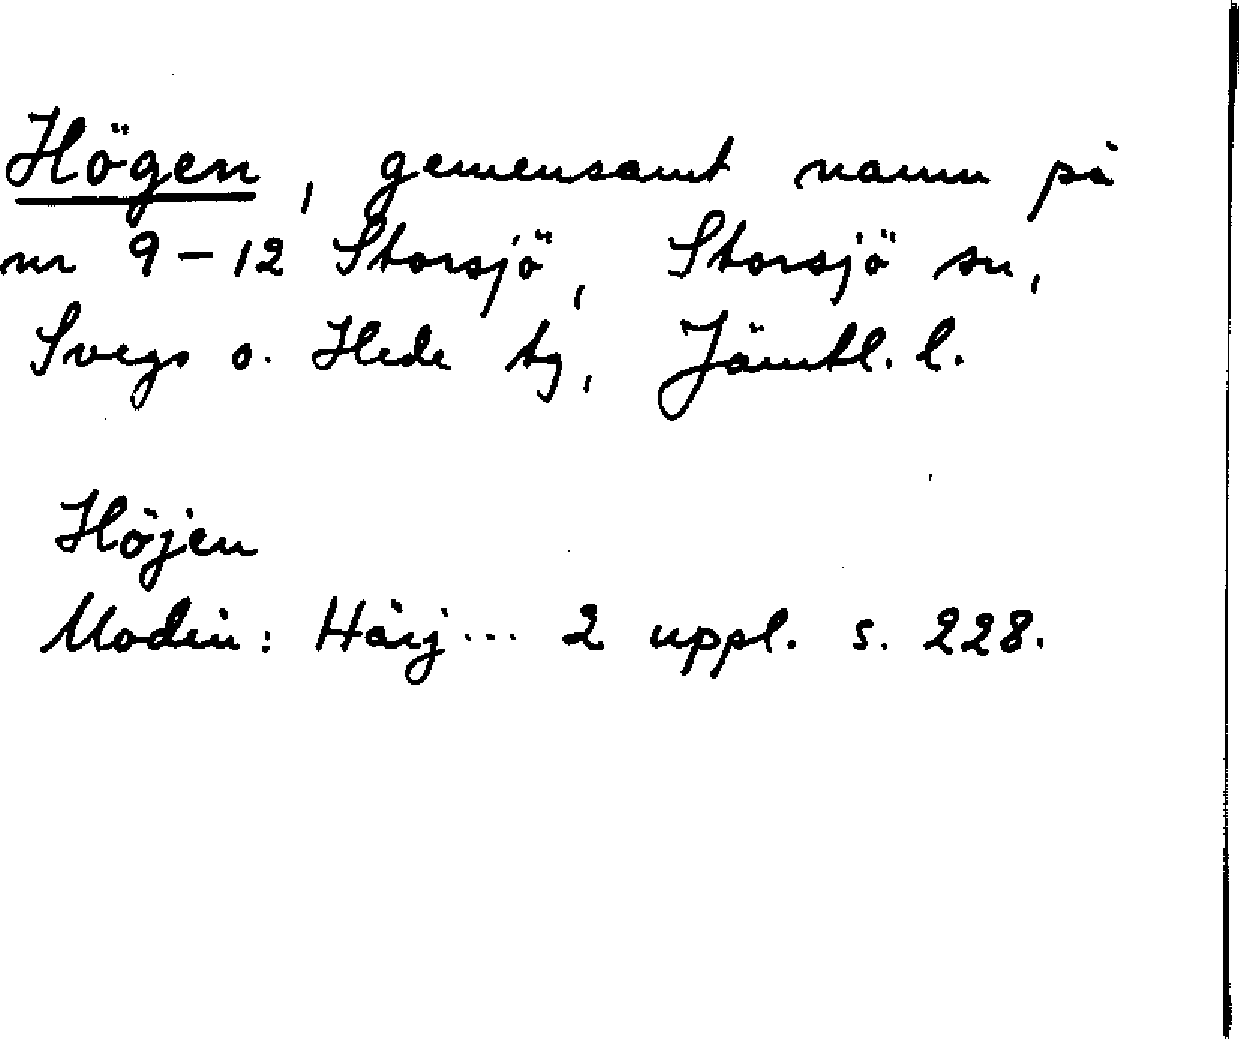 Högen, gemensamt namn på
nr 9-12 Storsjö, Storsjö sn,
Svegs o. Hede tg, Jämtl. l.
Höjen
Modin: Härj... 2 uppl. s. 228.